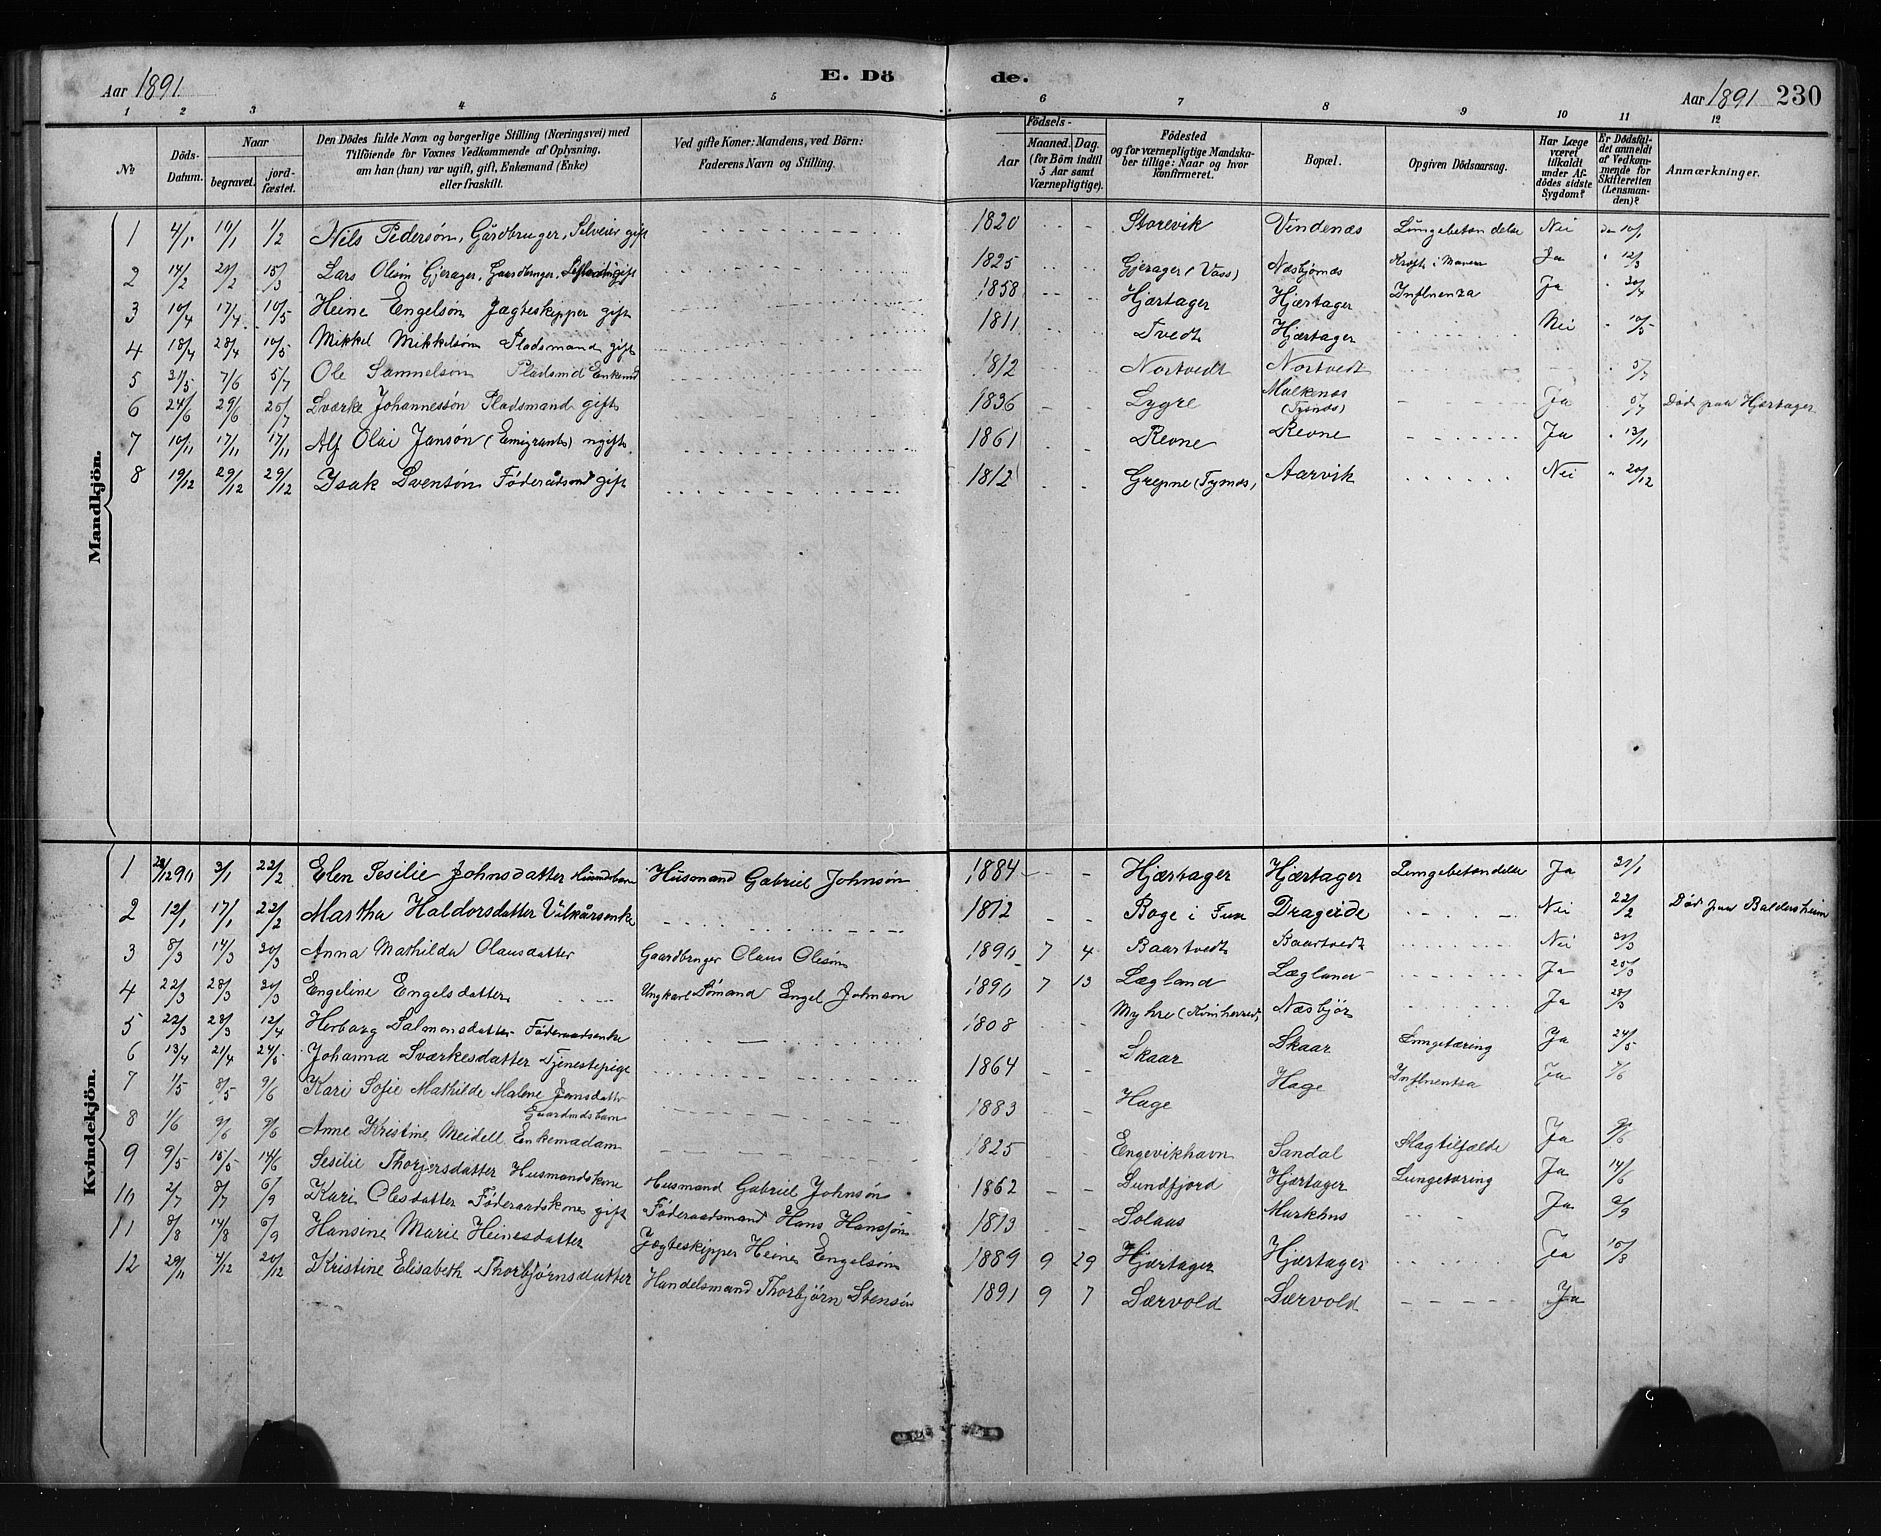 Aar 1891
E. Dö de.
Aar 1891 230
1 2 3 4 5 6 7 8 9 10 11 12
No
Döds-Datum.
Naar
begravet.
jord-fæstet.
Den Dödes fulde Navn og borgerlige Stilling (Næringsvei) med
Tilföiende for Voxnes Vedkommende af Oplysning,
om han (hun) var ugift, gift, Enkemand (Enke)
eller fraskilt.
Ved gifte Koner: Mandens, ved Börn:
Faderens Navn og Stilling.
Födsels-
Aar
Maaned. Dag.
(for Börn indtil
5 Aar samt
Værnepligtige).
Födested
og for værnepligtige Mandska-
ber tillige: Naar og hvor
konfirmeret.
Bopæl.
Opgiven Dödsaarsag.
Har Læge
været
tilkaldt
under Af-
dödes sidste
Sygdom?
Er Dödsfal-
det anmeldt
af Vedkom-
mende for
Skifteretten
(Lensman-
den)?
Anmærkninger.
Mandkjön.
1 4/1 10/1 1/2 Nils Pedersøn, Gårdbruger, Selveier gift 1820 Storevik Vindenæs Lungebetændelse Nei den 10/1
2 14/2 21/2 15/3 Lars Olsøn Gjerager, Gaardbruger, gift 1825 Gjerager (Vass) Næsbjørnæs Kræft i Maven Ja " 12/3
3 10/4 17/4 10/5 Heine Engelsøn Jægteskipper gift 1858 Hjærtager Hjærtager Influenza Ja " 20/4
4 18/4 28/4 10/5 Mikkel Mikkelsøn Pladsmand gift 1811 Tvedt Hjærtager Nei " 10/5
5 31/5 7/6 5/7 Ole Samuelsøn Pladsmd Enkemd 1812 Nortvedt Nortvedt " 5/7
6 24/6 29/6 25/7 Sværke Johannessøn Pladsmand gift 1836 Lygre Malkenæs (Tysnæs) Ja " 5/7 Död paa Hjærtager
7 10/11 17/11 17/11 Alf Olai Jansøn (Emigrant) ugift 1861 Revne Revne Ja " 13/11
8 19/12 29/12 29/12 Isak Svensøn Föderådsmd gift 1812 Grepne (Tysnæs) Aarvik Nei " 20/12
Kvindekjön.
1 28/12 90 3/1 22/2 Elen Sesilie Johnsdatter Husmdbarn Husmand Gabriel Johnsøn 1884 Hjærtager Hjærtager Lungebetændelse Ja 31/1
2 12/1 17/1 22/2 Martha Haldorsdatter Vilkårsenke 1812 Boge i Fuse Drageide Nei 22/2 Död paa Baldersheim
3 8/3 14/3 30/3 Anna Mathilda Olausdatter Gaardbruger Olaus Olesøn 1890 7 4 Baartvedt Baartvedt Nei 30/3
4 22/3 28/3 30/3 Engeline Engelsdatter Ungkarl Sømand Engel Johnson 1890 7 13 Lægland Lægland Ja 25/3
5 22/3 28/3 12/4 Herborg Salmonsdatter Föderaadsenke 1808 Myhre Næsbjør Ja 28/3
6 13/4 21/4 24/5 Johanna Sværkesdatter Tjenestepige 1864 Skaar Skaar Lungetæring Ja 24/5
7 1/5 8/5 9/6 Kari Sofie Mathilde Malene Jonsdatter Gaardmdsbarn 1883 Hage Hage Influentsa Ja 7/6
8 1/6 9/6 9/6 Anne Kristine Meidell Enkemadam 1825 Engevikhavn Sandal Slagtilfælde Ja 9/6
9 9/5 15/5 14/6 Sesilie Thorjersdatter Husmandskone Husmand Gabriel Johnsøn 1862 Sundfjord Hjærtager Lungetæring Ja 14/6
10 2/7 8/7 6/9 Kari Olesdatter Föderaadskone gift Föderaadsmand Hans Hanssøn 1813 Solaas Markhus Ja 9/9
11 8/8 14/8 6/9 Hansine Marie Heinesdatter Jægteskipper Heine Engelsøn 1889 9 29 Hjærtager Hjærtager Ja 10/8
12 29/11 4/12 20/12 Kristine Elisabeth Thorbjørnsdatter Handelsmand Thorbjørn Stensøn 1891 9 7 Særvold Særvold Ja